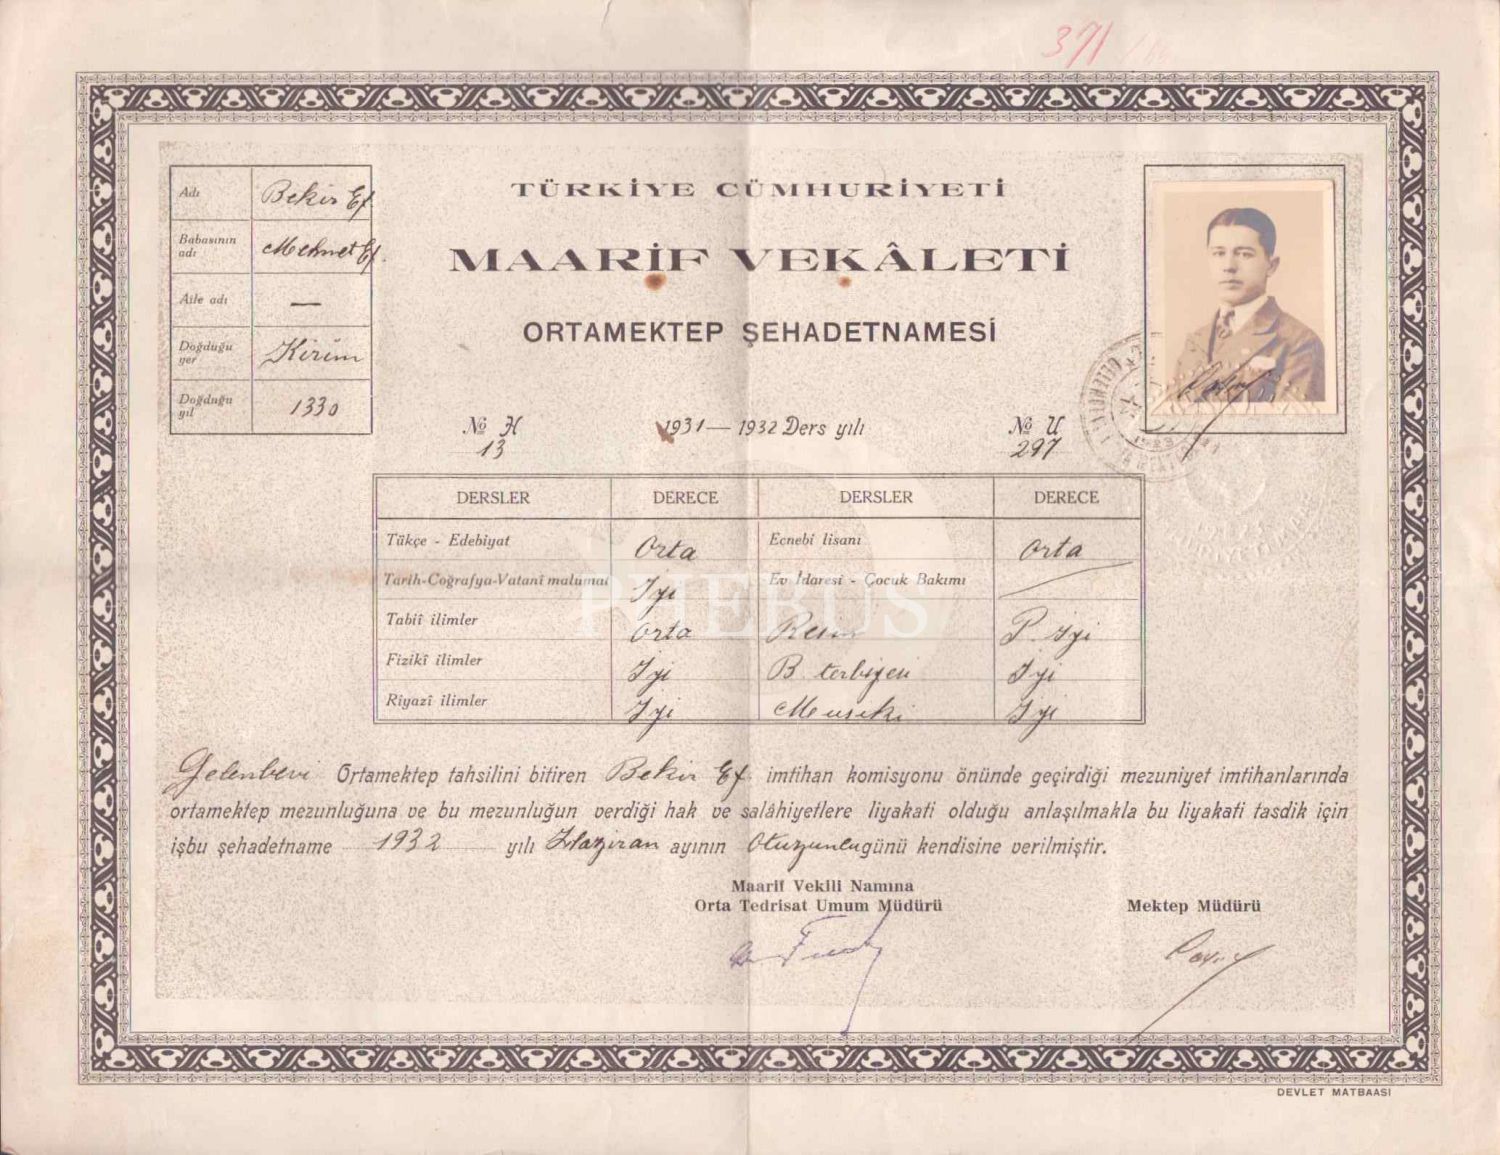 371
Adı Bekir Ef.
Babasının adı Mehmet Ef.
Aile adı —
Doğduğu yer Kirim
Doğduğu yıl 1330
TÜRKİYE CÜMHURİYETİ
MAARİF VEKÂLETİ
ORTAMEKTEP ŞEHADETNAMESİ
№ H 13
1931 — 1932 Ders yılı
№ U 297
DERSLER DERECE DERSLER DERECE
Tükçe - Edebiyat Orta Ecnebi lisanı Orta
Tarih-Coğrafya-Vatanî malûmat İyi Ev İdaresi - Çocuk Bakımı
Tabiî ilimler Orta Resim P. İyi
Fizikî ilimler İyi B. terbiyesi İyi
Riyazî ilimler İyi Musiki İyi
PHEBUS
Gelenbevi Ortamektep tahsilini bitiren Bekir Ef. imtihan komisyonu önünde geçirdiği mezuniyet imtihanlarında
ortamektep mezunluğuna ve bu mezunluğun verdiği hak ve salâhiyetlere liyakati olduğu anlaşılmakla bu liyakati tasdik için
işbu şehadetname 1932 yılı Haziran ayının Otuzuncu günü kendisine verilmiştir.
Maarif Vekili Namına
Orta Tedrisat Umum Müdürü
Mektep Müdürü
DEVLET MATBAASI